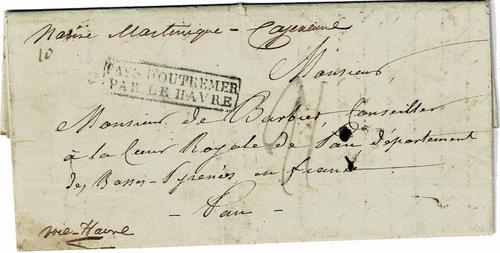 Navire Martinique - Cayenne
10
Monsieur
PAYS D'OUTREMER
PAR LE HAVRE
Monsieur de Barbier, Conseiller
à la Cour Royale de Pau département
des Basses-Pyrenées en france
- Pau -
voie - Havre